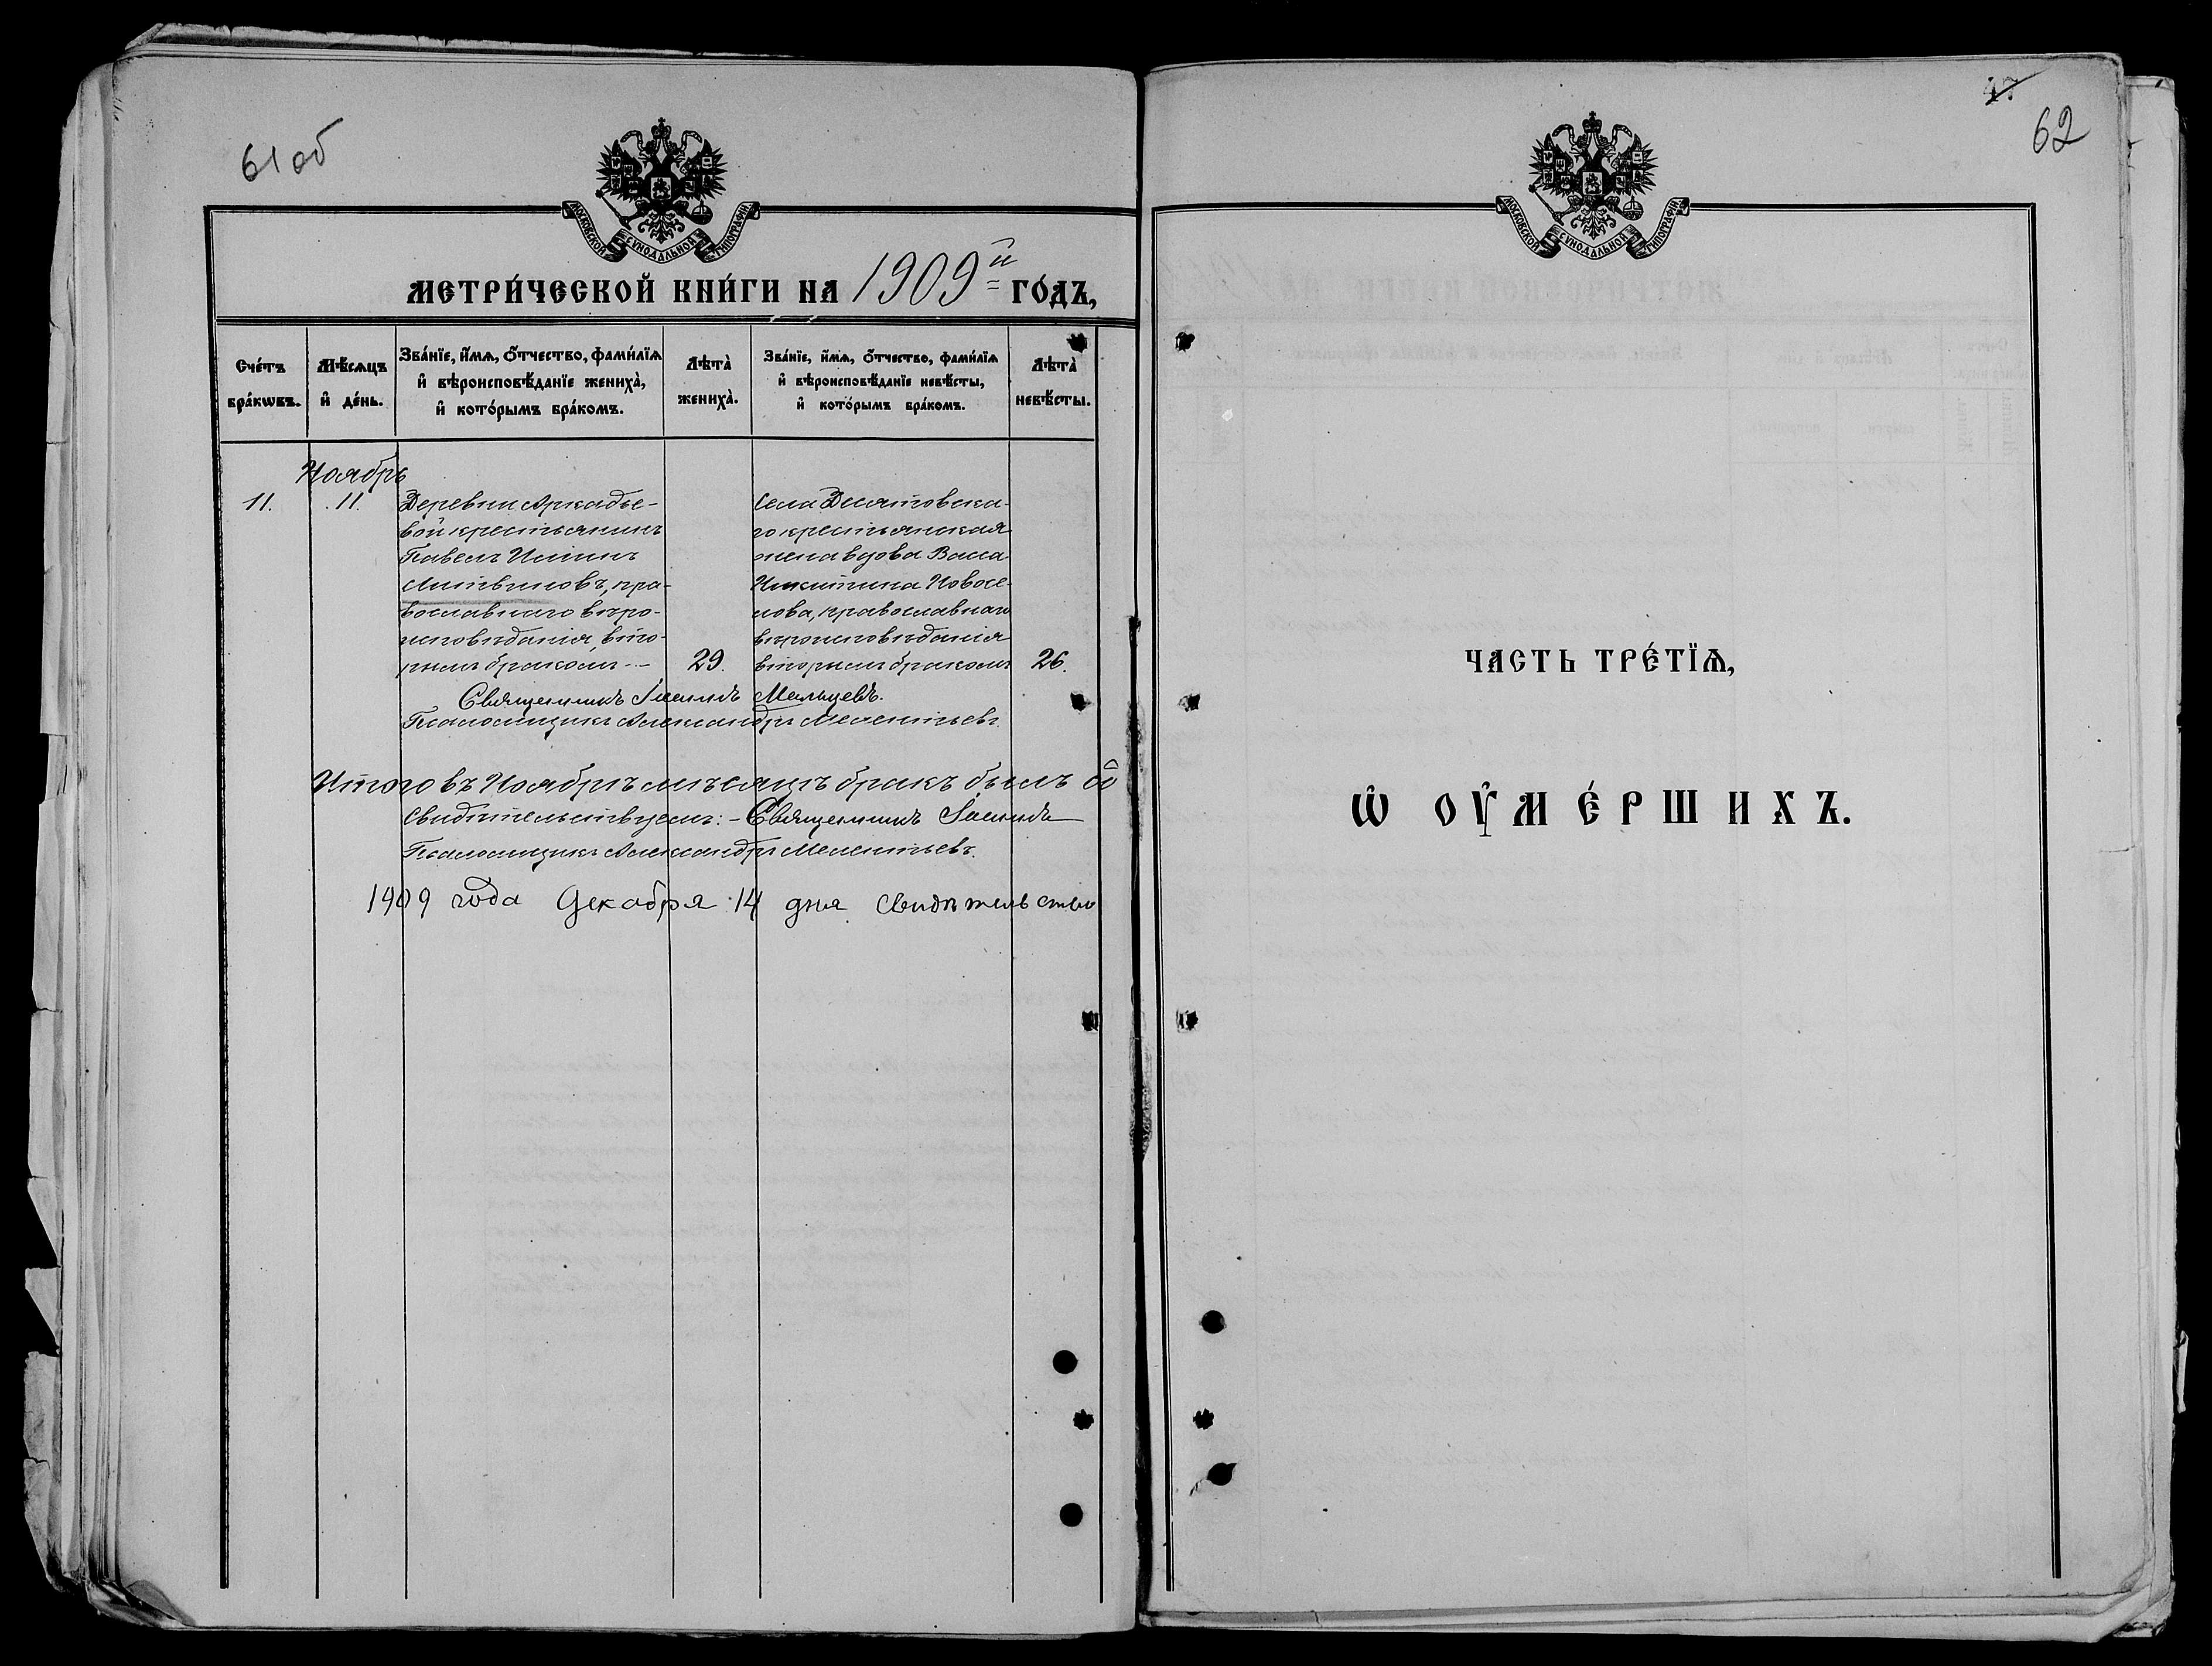 61 об
МОСКОВСКОЙ СѴНОДАЛЬНОЙ ТИПОГРАФІИ
МЕТРИ́ЧЕСКОЙ КНИ́ГИ НА 1909й ГО́ДЪ,
Сче́тъ бра́кѡвъ.
Мѣ́сяцъ и҆ де́нь.
Зва́нїе, и҆́мѧ, ѻ҆́тчество, фами́лїѧ и҆ вѣроисповѣ́данїе жениха̀, и҆ кото́рымъ бра́комъ.
Лѣта̀ жениха̀.
Зва́нїе, и҆́мѧ, ѻ҆́тчество, фами́лїѧ и҆ вѣроисповѣ́данїе невѣ́сты, и҆ кото́рымъ бра́комъ.
Лѣта̀ невѣ́сты.
Ноябрь
11.
11.
Деревни Аркадье-
вой крестьянинъ
Павелъ
Литвиновъ, пра-
вославнаго вѣро-
исповѣданія, вто-
рымъ бракомъ
29.
Села Десятовска-
го крестьянская
жена вдова Васса
Никитина Новосе-
лова, православнаго
вѣроисповѣданія
вторымъ бракомъ
26.
Священникъ Іоаннъ Мальцевъ.
Псаломщикъ Александръ Мелентьевъ.
Итого въ Ноябрѣ мѣсяцѣ бракъ былъ
Свидѣтельствуемъ: - Священникъ Іоаннъ
Псаломщикъ Александръ Мелентьевъ.
1909 года Декабря 14 дня свидѣтельство
47
62
МОСКОВСКОЙ СѴНОДАЛЬНОЙ ТИПОГРАФІИ
ЧАСТЬ ТРЕ́ТЇѦ,
Ѡ҆ ОУ҆МЕ́РШИХЪ.